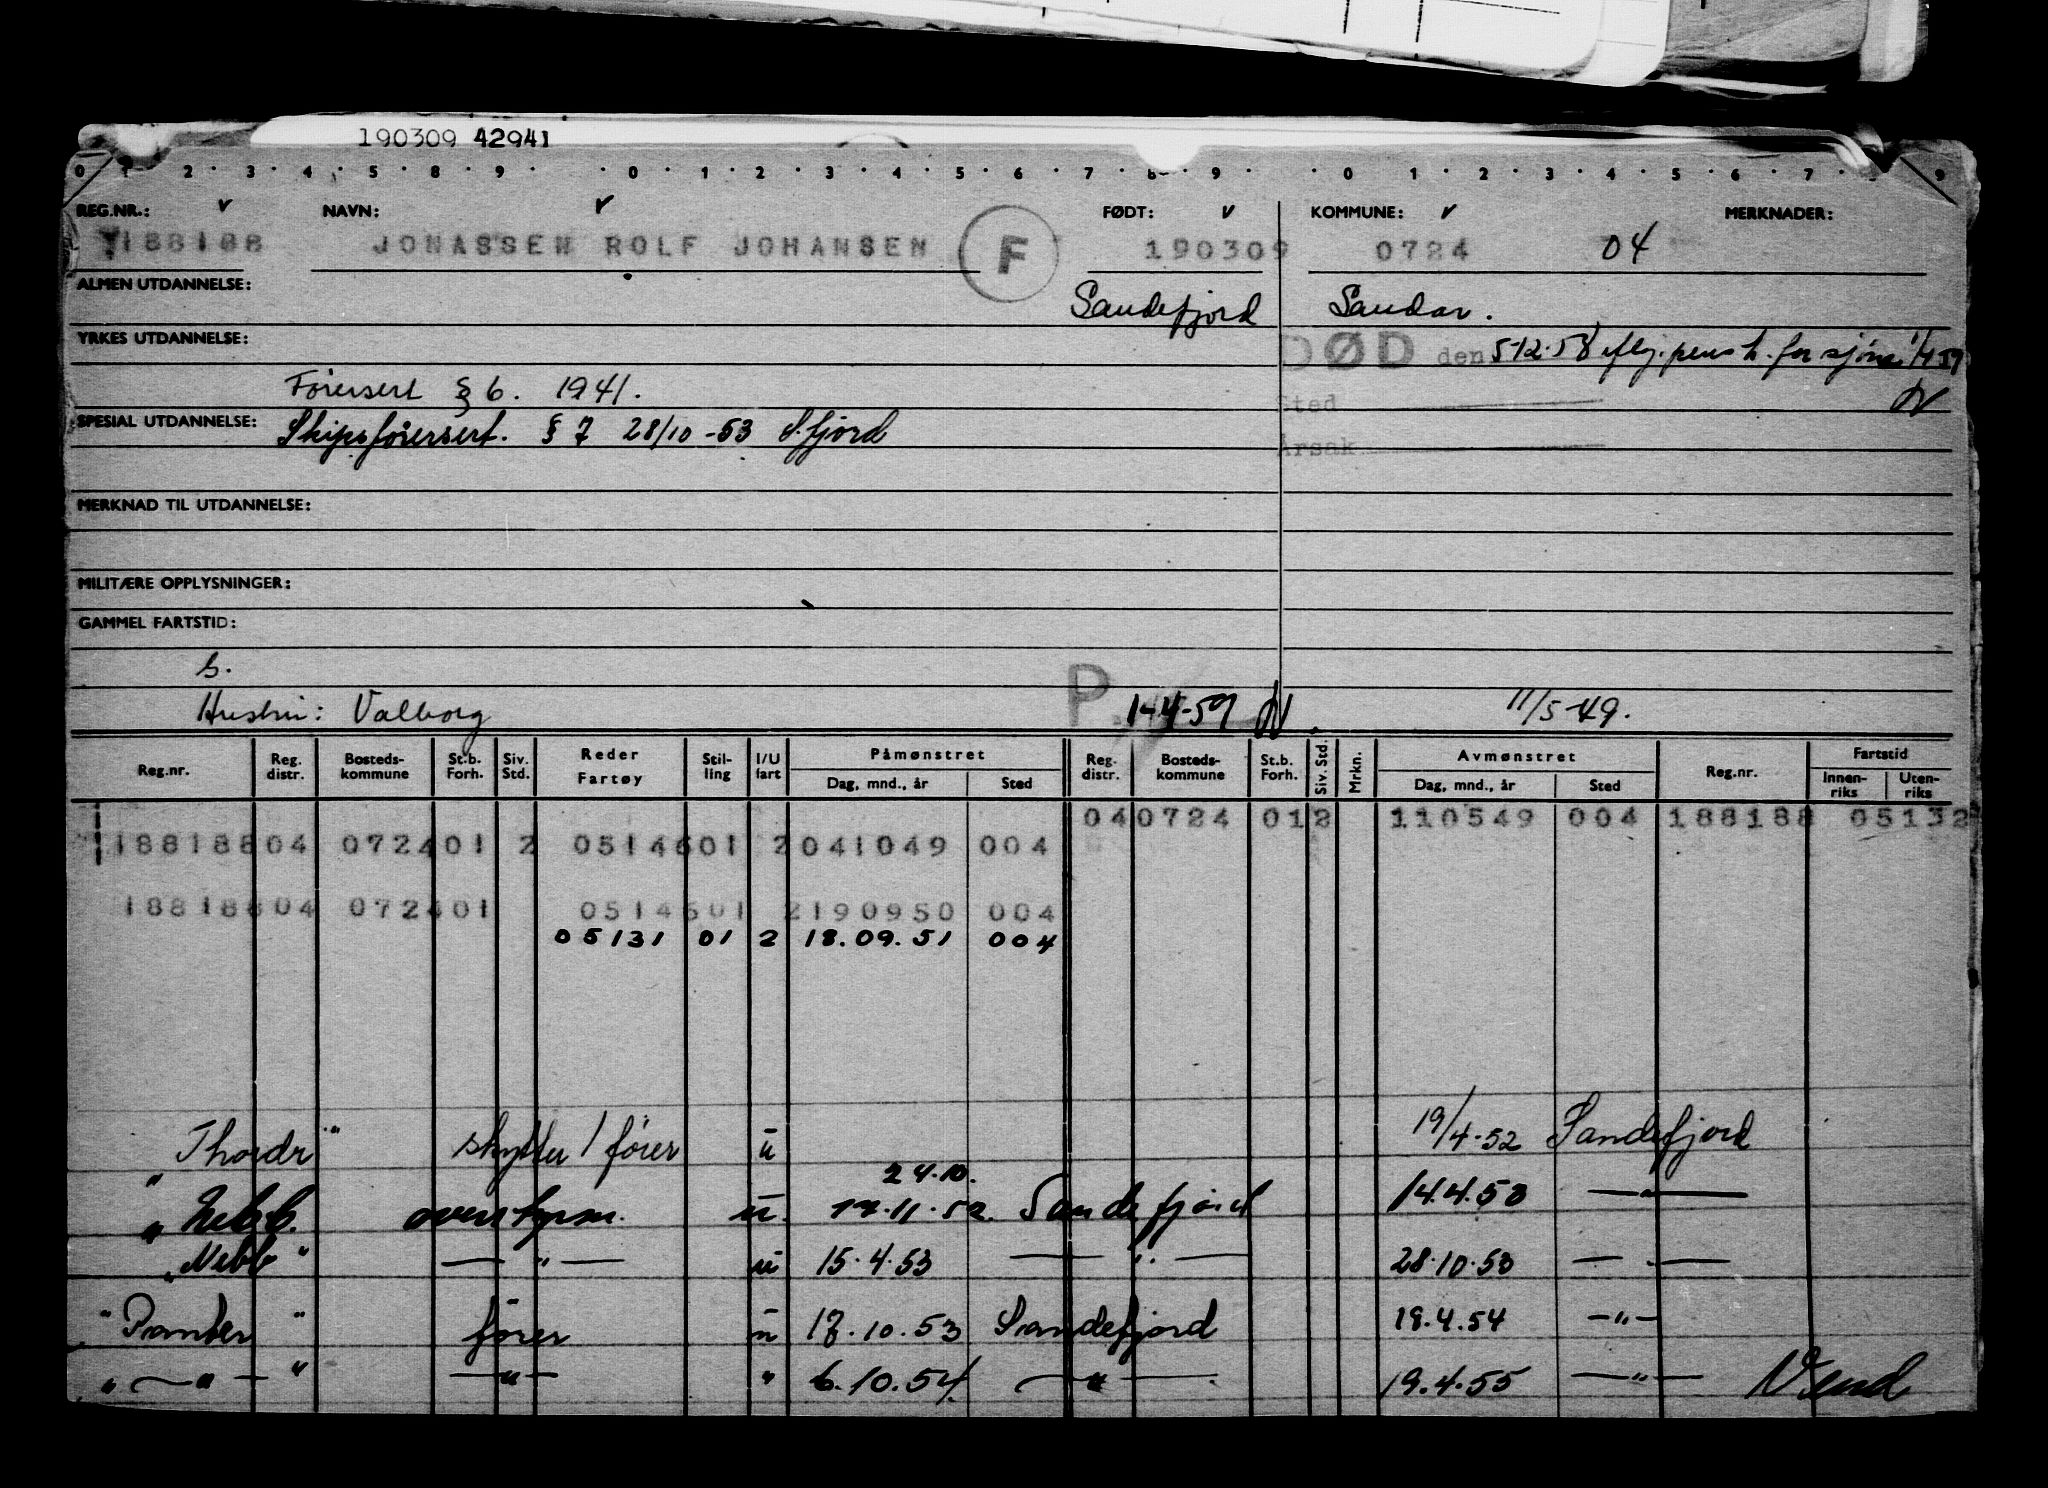 190309 42941
0 1 2 3 4 5 8 9 0 1 2 3 4 5 6 7 8 9 0 1 2 3 4 5 6 7 9
REG.NR.: v NAVN: v FØDT: v KOMMUNE: v MERKNADER:
188188 JONASSEN ROLF JOHANSEN F 190309 0724 04
ALMEN UTDANNELSE: Sandefjord Sandar.
YRKES UTDANNELSE: DØD den 5-12-58 eflg. pens tr. for sjøm 1/4 59
Førersert § 6. 1941. Sted
SPESIAL UTDANNELSE: Skipsførersert. § 7 28/10-53 S.fjord Årsak
MERKNAD TIL UTDANNELSE:
MILITÆRE OPPLYSNINGER:
GAMMEL FARTSTID:
s.
Hustru: Valborg P. 14-4-59 11/5-49.
Reg.nr. Reg. distr. Bosteds-kommune St.b. Forh. Siv. Std. Reder Fartøy Stil-ling I/U fart Påmønstret Dag, mnd., år Sted Reg. distr. Bosteds-kommune St.b. Forh. Siv. Std. Mrkn. Avmønstret Dag, mnd., år Sted Reg.nr. Fartstid Innen-riks Uten-riks
04 0724 01 2 110549 004 188188 05132
188188 04 0724 01 2 05146 01 2 041049 004
188188 04 0724 01 05146 01 2 190950 004
05131 01 2 18.09.51 004
" Thordr " skytter / fører u 19/4-52 Sandefjord
24.10.
" Nebb. overstyrm. u. 17.11.52. Sandefjord 14.4.53 — " —
" Nebb " — " — u 15.4.53 — " — 28.10.53 — " —
" Panter " fører u 17.10.53 Sandefjord 19.4.54 — " —
" — " — " — " — " 6.10.54. — " — 19.4.55 — " — Vend